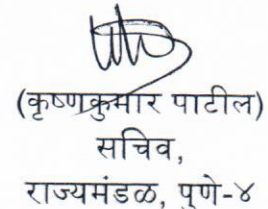 (कृष्णकुमार पाटील)
सचिव,
राज्यमंडळ, पुणे-४